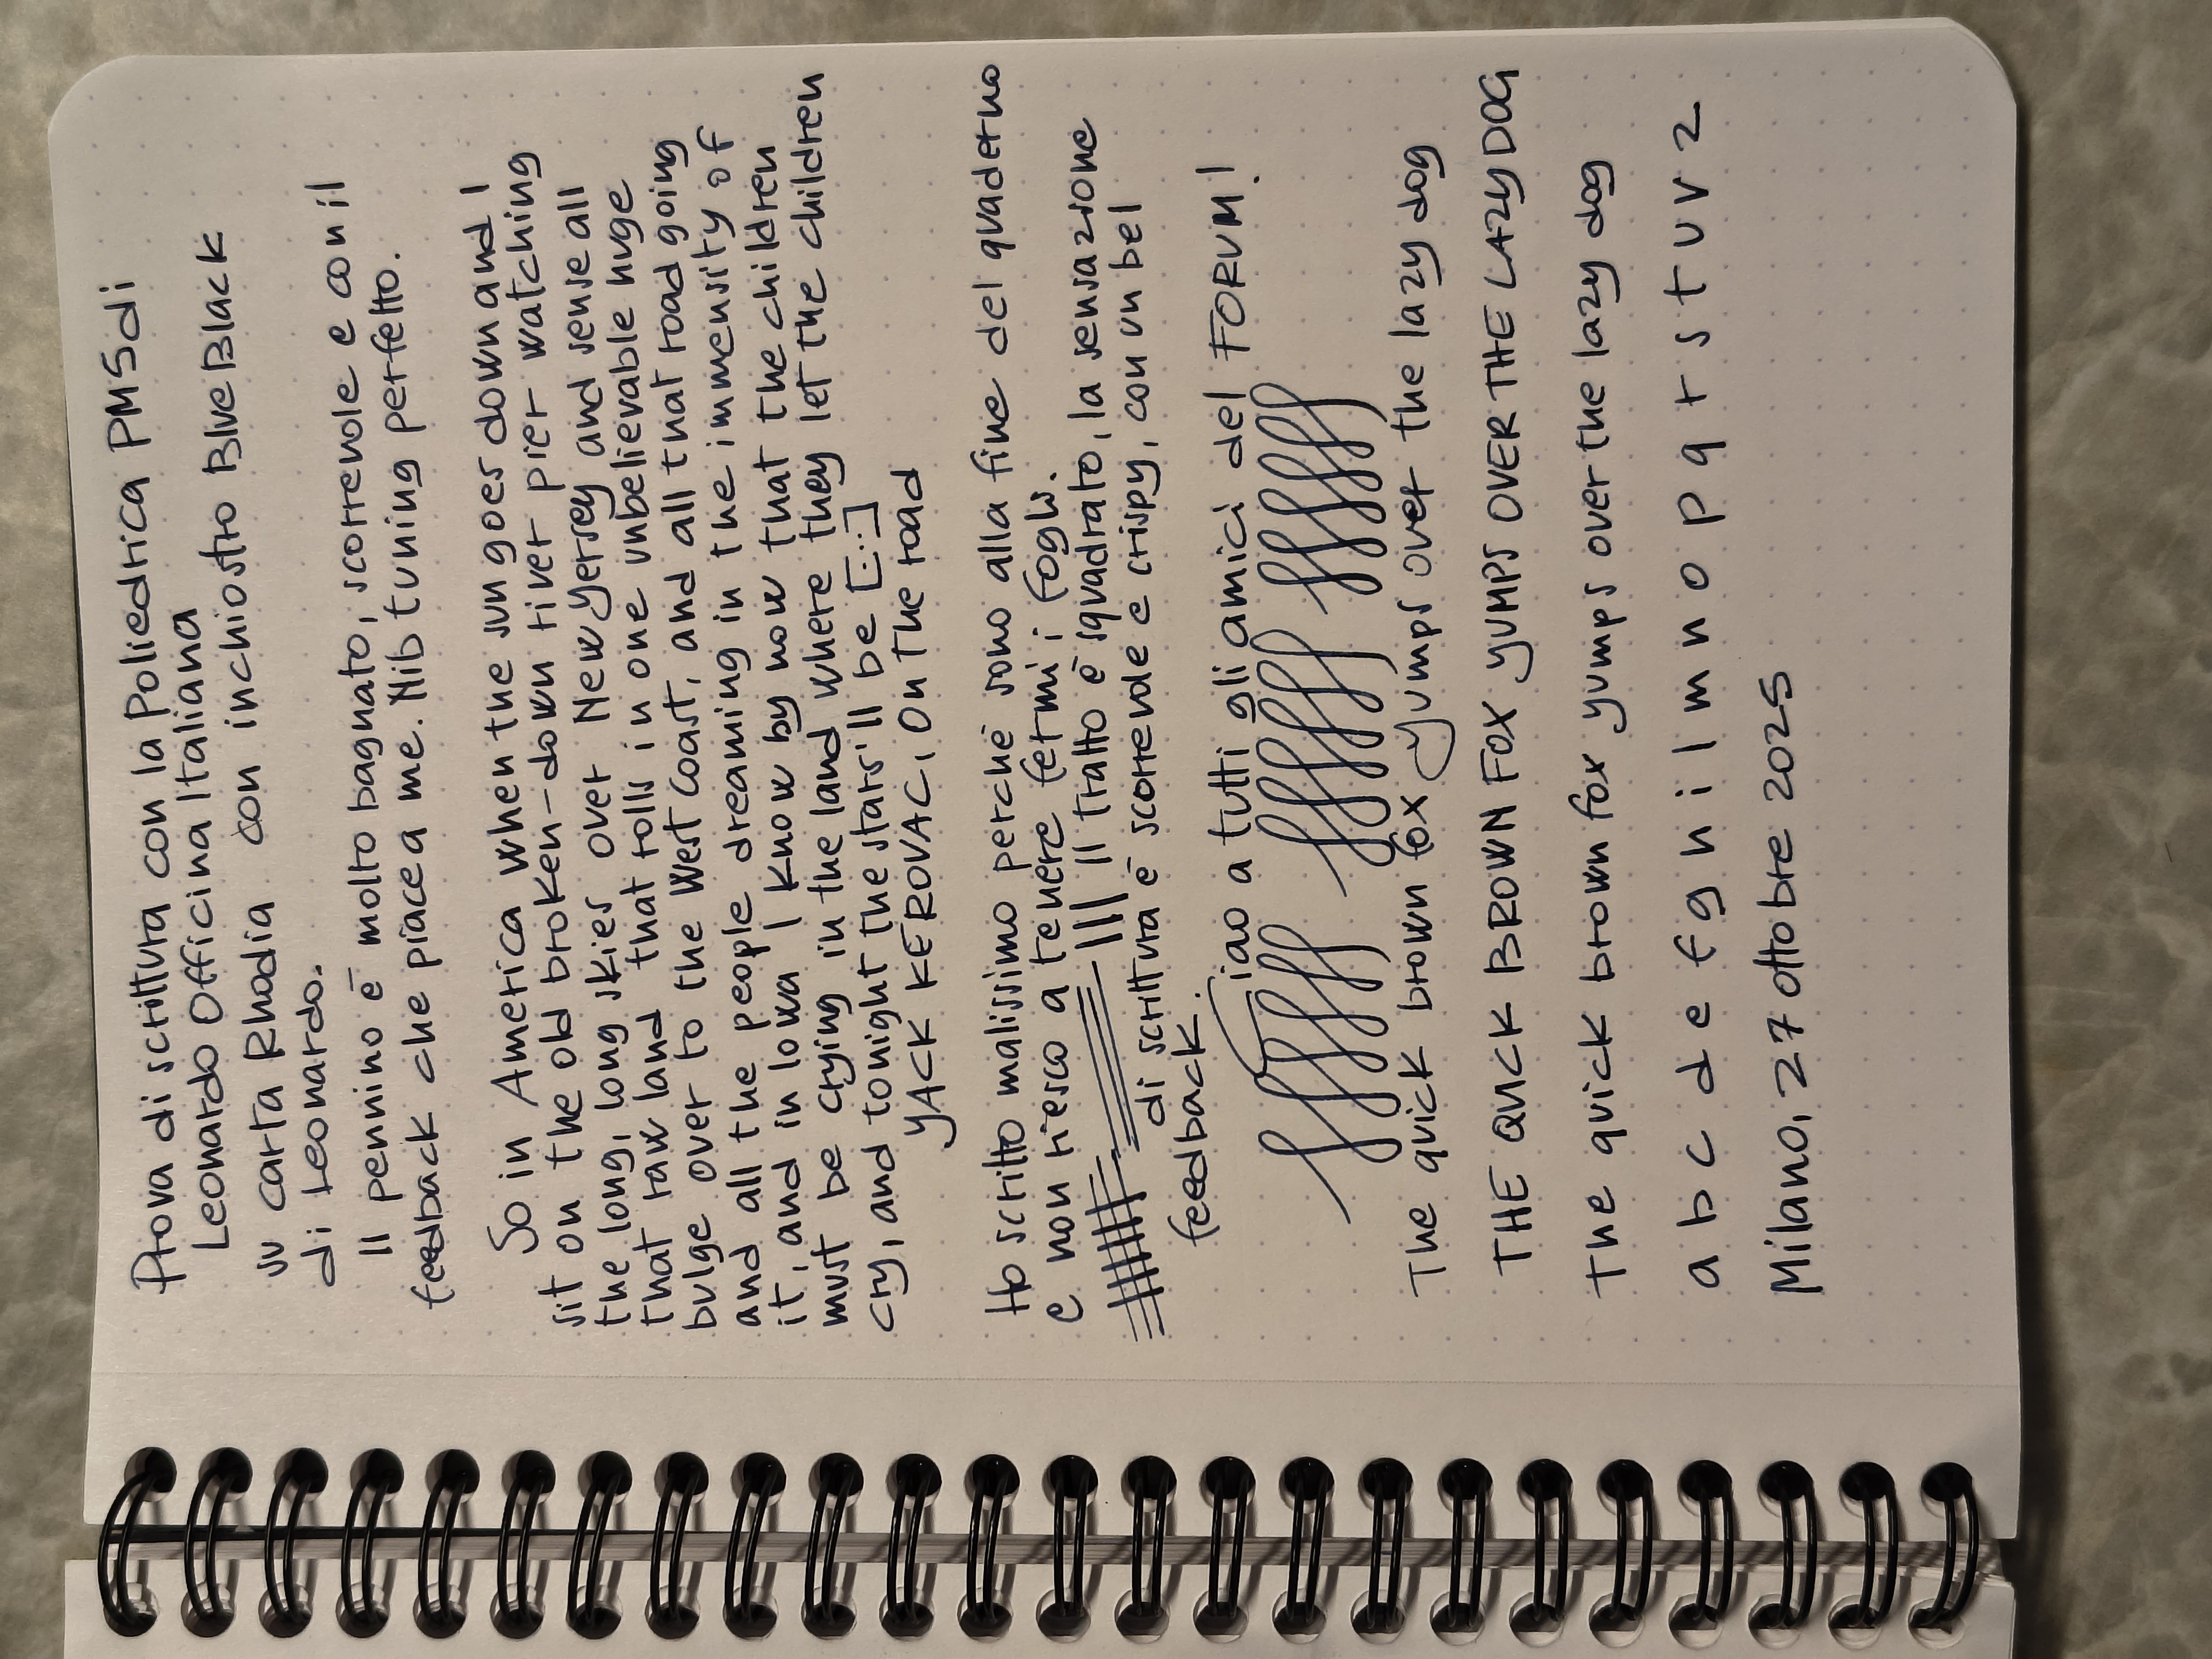 Prova di scrittura con la Poliedrica PM5 di
Leonardo Officina Italiana
su carta Rhodia con inchiostro Blue Black
di Leonardo.
Il pennino è molto bagnato, scorrevole e con il
feedback che piace a me. Nib tuning perfetto.
So in America when the sun goes down and I
sit on the old broken-down river pier watching
the long, long skies over New Yersey and sense all
that raw land that rolls in one unbelievable huge
bulge over to the West Coast, and all that road going
and all the people dreaming in the immensity of
it, and in Iowa I know by now that the children
must be crying in the land where they let the children
cry, and tonight the stars'll be [...]
YACK KEROUAC, ON THE road
Ho scritto malissimo perchè sono alla fine del quaderno
e non riesco a tenere fermi i fogli.
Il tratto è squadrato, la sensazione
di scrittura è scorrevole e crispy, con un bel
feedback.
Ciao a tutti gli amici del FORUM!
The quick brown fox yumps over the lazy dog
THE QUICK BROWN FOX YUMPS OVER THE LAZY DOG
The quick brown fox yumps over the lazy dog
a b c d e f g h i l m n o p q r s t u v z
Milano, 27 ottobre 2025